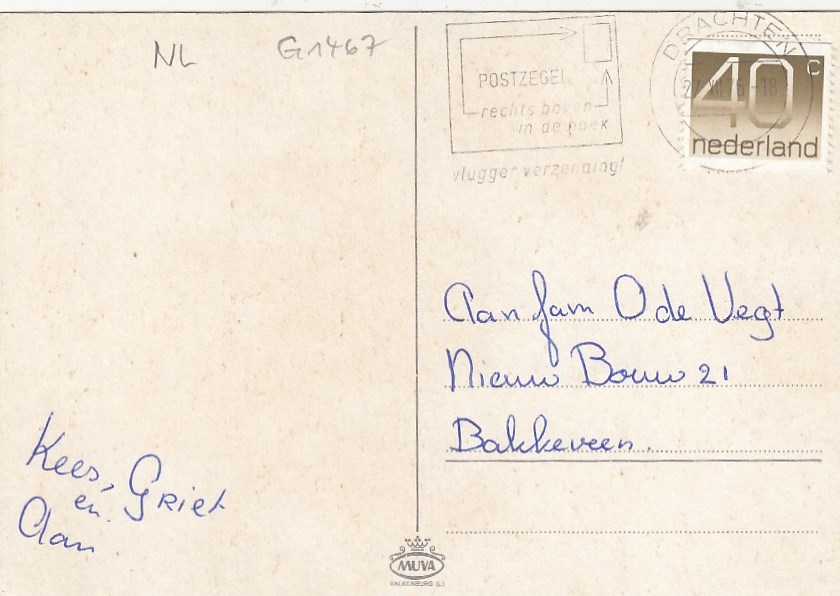 NL G1467
POSTZEGEL
rechts boven
in de hoek
vlugger verzending!
DRACHTEN
40 c
nederland
Aan fam O de Vegt
Nieuw Bouw 21
Bakkeveen.
Kees, Griet
en
Aan
MUVA
VALKENBURG (L.)